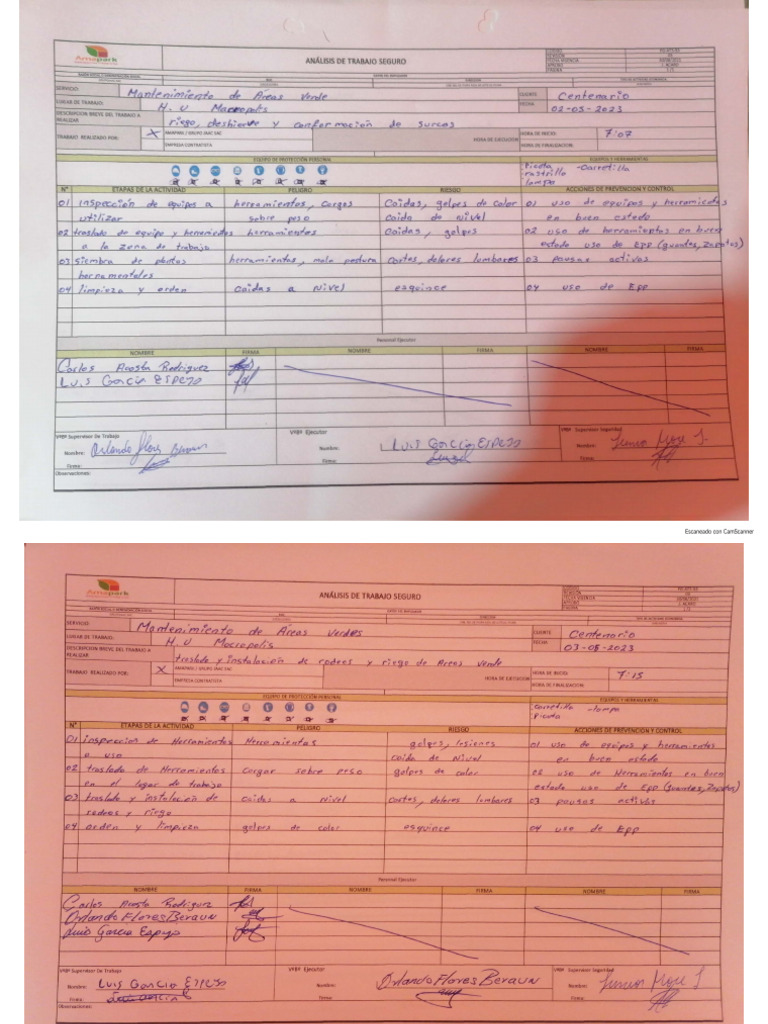 Amepark
ANÁLISIS DE TRABAJO SEGURO
SERVICIO: Mantenimiento de Areas Verde
CLIENTE: Centenario
LUGAR DE TRABAJO: H. U Macropolis
FECHA: 02-05-2023
DESCRIPCION BREVE DEL TRABAJO A REALIZAR riego, deshierve y conformación de surcos
TRABAJO REALIZADO POR: X
EMPRESA CONTRATISTA
HORA DE EJECUCION
HORA DE INICIO: 7:07
HORA DE FINALIZACION:
EQUIPO DE PROTECCIÓN PERSONAL
EQUIPOS Y HERRAMIENTAS
Picota -Carretilla
rastrillo
lampa
N° ETAPAS DE LA ACTIVIDAD PELIGRO RIESGO ACCIONES DE PREVENCION Y CONTROL
01 inspección de equipos a herramientas, cargas Caidas, golpes de calor 01 uso de equipos y herramientas
utilizar sobre peso Caida de nivel en buen estado
02 traslado de equipo y herramientas herramientas Caidas, golpes 02 uso de herramientas en buen
a la zona de trabajo estado uso de EPP (guantes, Zapatos)
03 siembra de plantas herramientas, mala postura cortes, dolores lumbares 03 pausas activas
hornamentales
04 limpieza y orden Caidas a Nivel esquince 04 uso de Epp
Personal Ejecutor
NOMBRE FIRMA NOMBRE FIRMA NOMBRE FIRMA
Carlos Acosta Rodriguez
Luis Garcia ESPEJO
V°B° Supervisor De Trabajo V°B° Ejecutor V°B° Supervisor Seguridad
Nombre: Orlando Flores Beraun Nombre: LUIS GARCIA ESPEJO Nombre: Junior
Firma: Firma: Firma:
Observaciones:
Escaneado con CamScanner
Amepark
ANÁLISIS DE TRABAJO SEGURO
SERVICIO: Mantenimiento de Áreas Verdes
CLIENTE: Centenario
LUGAR DE TRABAJO: H. U Macropolis
FECHA: 03-05-2023
DESCRIPCION BREVE DEL TRABAJO A REALIZAR traslado y instalación de padres y riego de Areas Verde
TRABAJO REALIZADO POR: X
EMPRESA CONTRATISTA
HORA DE EJECUCION
HORA DE INICIO: 7:15
HORA DE FINALIZACION:
EQUIPO DE PROTECCIÓN PERSONAL
EQUIPOS Y HERRAMIENTAS
Carretilla -lampa
Picota
N° ETAPAS DE LA ACTIVIDAD PELIGRO RIESGO ACCIONES DE PREVENCION Y CONTROL
01 inspección de Herramientas Herramientas golpes, lesiones 01 uso de equipos y herramientas
a uso Caida de Nivel en buen estado
02 traslado de Herramientas Cargar sobre peso golpes de calor 02 uso de Herramientas en buen
en el lugar de trabajo estado uso de EPP (guantes, Zapatos)
03 traslado y instalación de caidas a nivel cortes, dolores lumbares 03 pausas activas
padres y riego
04 orden y limpieza golpes de calor esquince 04 uso de EPP
Personal Ejecutor
NOMBRE FIRMA NOMBRE FIRMA NOMBRE FIRMA
Carlos Acosta Rodriguez
Orlando Flores Beraun
Luis Garcia Espejo
V°B° Supervisor De Trabajo V°B° Ejecutor V°B° Supervisor Seguridad
Nombre: LUIS GARCIA ESPEJO Nombre: Orlando Flores Beraun Nombre: Junior
Firma: Firma: Firma:
Observaciones: